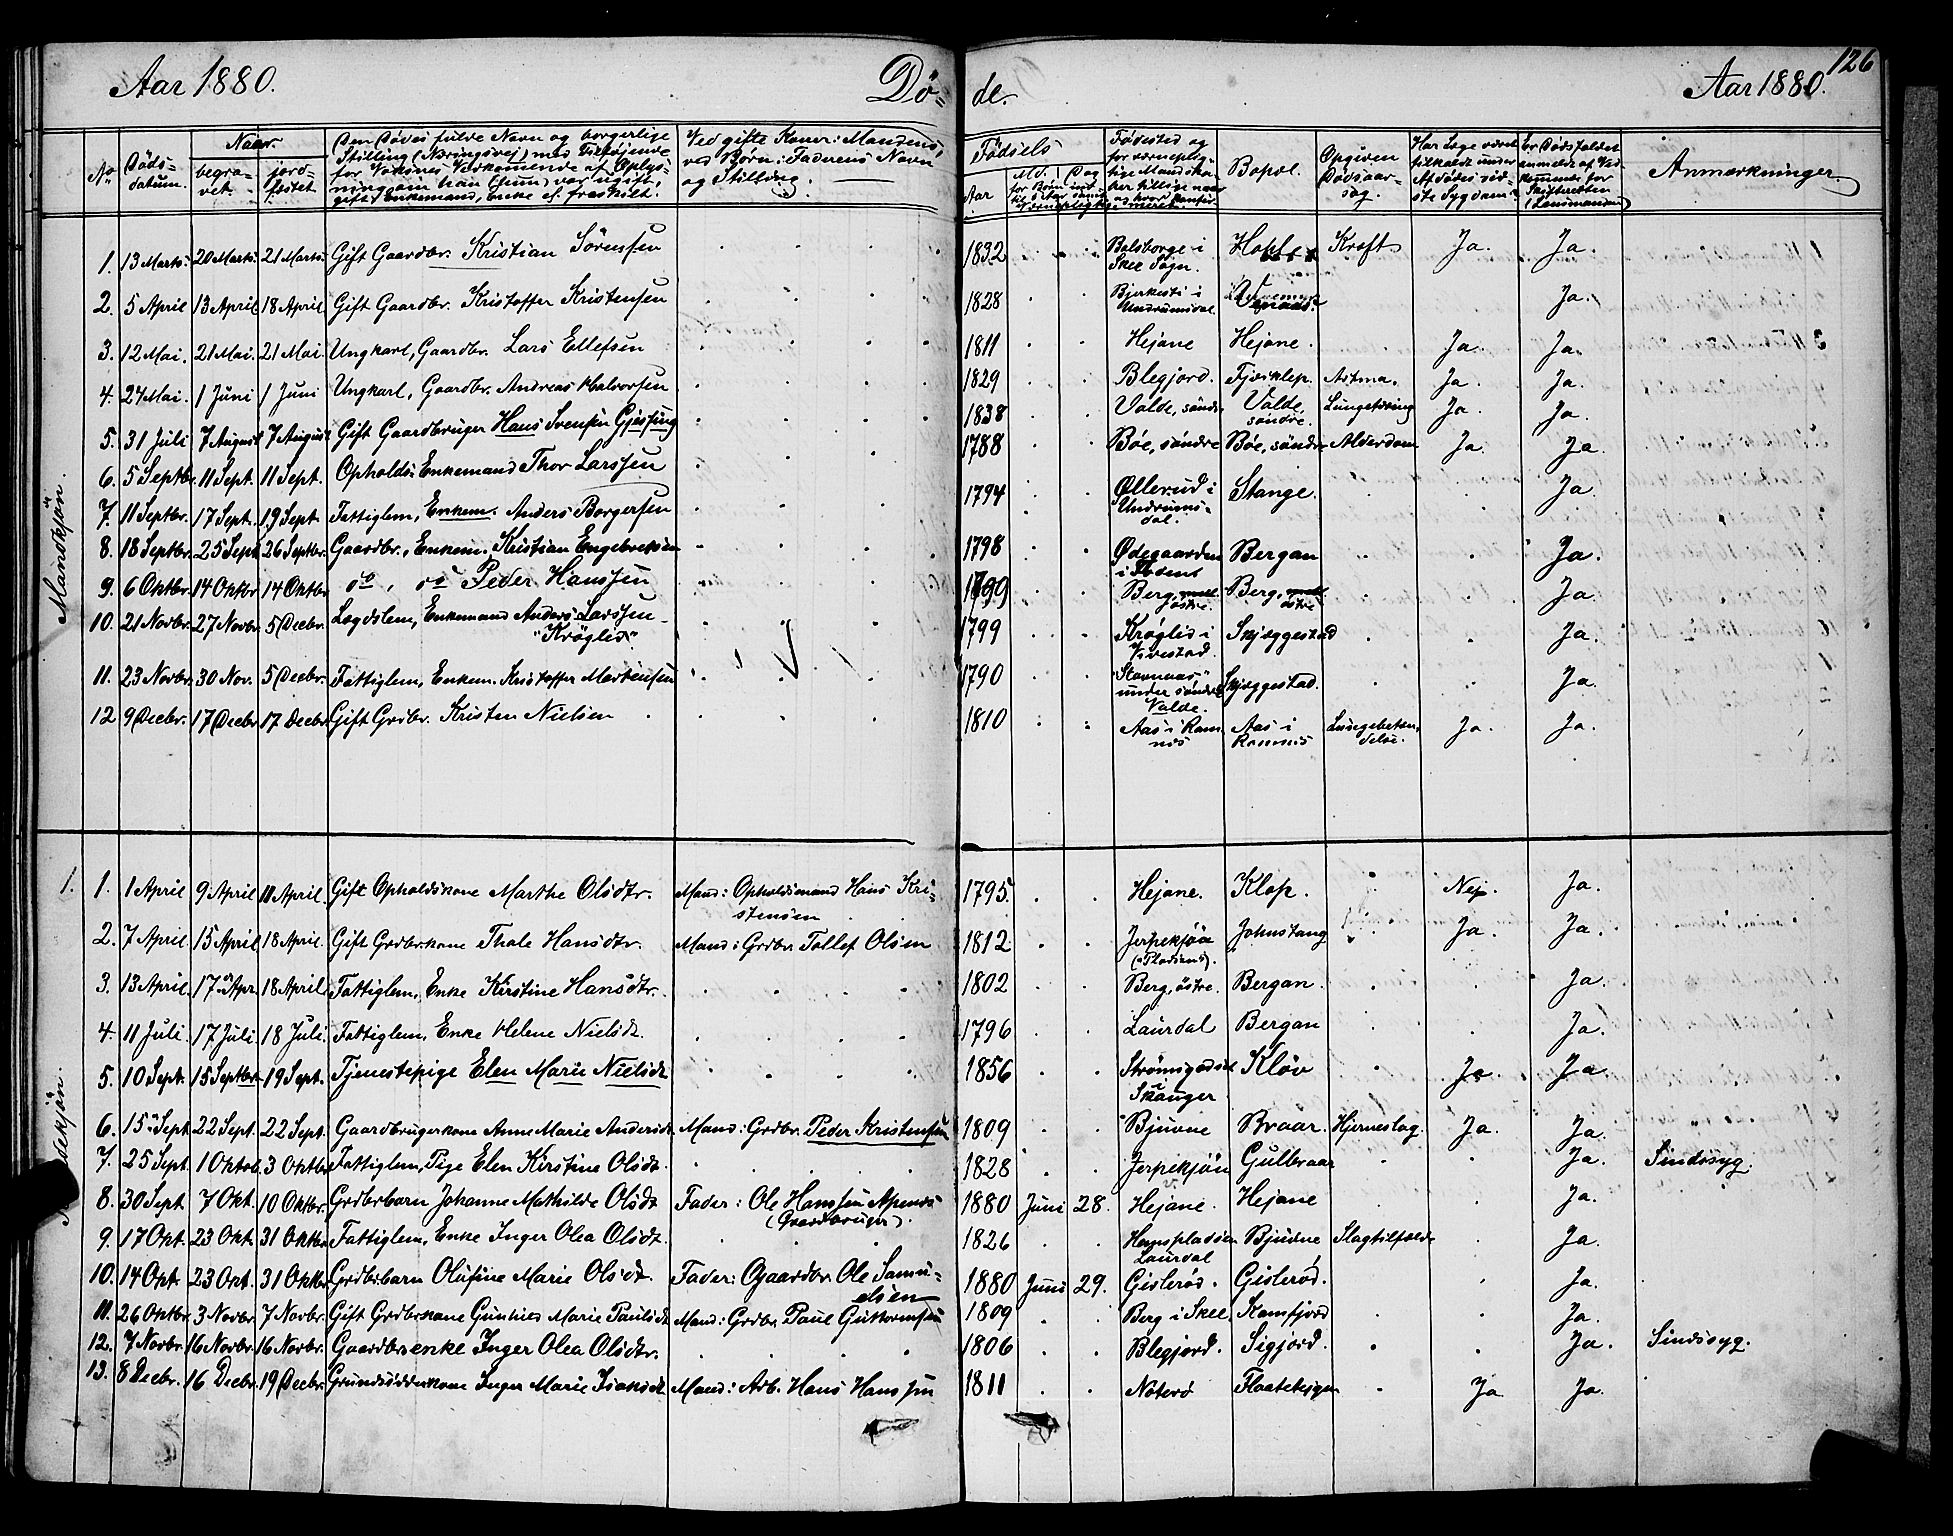 Aar 1880. Dö- de. Aar 1880. 126
No Döds-datum. Naar begra-vet. jord-fæstet. Den Dödes fulde Navn og borgerlige Stilling (Næringsvej) med Tilföjende for Voksnes Vedkommende af Oplys-ning om han (hun) var ugift, gift, Enkemand, Enke el. fraskilt. Ved gifte Koner: Mandens, ved Börn: Faderens Navn og Stilling. Födsels Aar Md. Dag Födested og Bopæl. Opgiven Dödsaar-sag. Har Læge været tilkaldt under Afdödes sid-ste Sygdom? Er Dödsfaldet anmeldt af Ved-kommende for Skifteretten (Lensmanden) Anmærkninger.
Mandkjön.
1. 13 Marts. 20 Marts. 21 Marts. Gift Gaardbr. Kristian Sörensen 1832 i Skee Sogn. Kræft Ja. Ja.
2. 5 April 13 April 18 April Gift Gaardbr. Kristoffer Kristensen 1828 Bjerkesti i Undrumsdal. Ja.
3. 12 Mai. 21 Mai. 21 Mai. Ungkarl, Gaardbr. Lars Ellefsen 1811 Hejane Hejane. Ja. Ja.
4. 24 Mai. 1 Juni 1 Juni Ungkarl, Gaardbr. Andreas Halvorsen 1829 Blegjord. Fjæreklep. Astma. Ja. Ja.
5. 31 Juli 7 August 7 August Gift Gaardbruger Hans Svensen Gjessing 1838 Valde, söndre Valde, söndre. Lungetæring Ja. Ja.
6. 5 Septbr. 11 Sept. 11 Sept. Opholds: Enkemand Thor Larssen 1788 Böe, söndre Böe, söndre Alderdom Ja. Ja.
7. 11 Septbr. 17 Sept. 19 Sept. Fattiglem, Enkem. Anders Borgersen 1794 Øllerud i Undrums-dal. Stange. Ja.
8. 18 Septbr. 25 Sept. 26 Septbr. Gaardbr., Enkem. Kristian Engebretsen 1798 Ødegaarden Bergan Ja.
9. 6 Oktbr. 14 Oktbr 14 Oktbr do, do Peder Hanssen 1799 Berg, östre. Berg, östre Ja.
10. 21 Novbr. 27 Novbr. 5 Decbr. Lægdslem, Enkemand Anders Larssen "Kröglid". 1799 Kröglid i Vivestad. Skjæggestad Ja.
11. 23 Novbr. 30 Nov. 5 Decbr. Fattiglem, Enkem. Kristoffer Mortensen 1790 "Stavnaas" under söndre Valde. Skjæggestad. Ja.
12 9 Decbr. 17 Decbr. 17 Decbr Gift Grdbr. Kristen Nielsen 1810 Aas i Ram-nes Aas i Ramnes Lungebetæn-delse. Ja. Ja.
1. 1. 1 April 9 April 11 April. Gift Opholdskone Marthe Olsdtr. Mand: Opholdsmand Hans Kri-stensen 1795. Hejane. Klop. Nej. Ja.
2. 7 April 15 April 18 April. Gift Grdbrkone Thale Hansdtr. Mand: Grdbr. Tollef Olsen 1812 Jerpekjön Johnstang Ja. Ja.
3. 13 April. 17 Apr. 18 April. Fattiglem, Enke Kirstine Hansdtr. 1802 Berg, östre. Bergan. Ja.
4. 11 Juli. 17 Juli. 18 Juli. Fattiglem, Enke Helene Nielsdt. 1796 Laurdal Bergan Ja.
5. 10 Sept. 15 Septbr. 19 Sept. Tjenestepige Elen Marie Nielsdt 1856 Strömsgodset i Skauger Klöv Ja. Ja
6. 15 Sept. 22 Sept. 22 Sept. Gaardbrugerkone Anne Marie Andersdt. Mand: Grdbr. Peder Kristensen 1809 Bjuvne Braar. Hjerneslag Ja. Ja.
7. 25 Sept. 1 Oktob. 3 Oktbr Fattiglem, Pige Elen Kirstine Olsdt. 1828 Jerpekjön Gulbraar Ja. Sindssyg.
8. 30 Sept 7 Okt. 10 Oktbr. Grdbrbarn Johanne Mathilde Olsdt Fader: Ole Hanssen (Gaardbruger). 1880 Juni 28. Hejane. Hejane Ja.
9. 17 Okt. 23 Okt. 31 Oktbr Fattiglem, Enke Inger Olea Olsdt. 1826 Laurdal Bjuvne Slagtilfælde Ja.
10. 14 Opt. 23 Opt. 31 Oktbr Grdbrbarn Olufine Marie Olsdt. Fader: Gaardbr. Ole Samu-elsen 1880 Juni 29. Gislerød. Gislerød. Ja.
11. 26 Oktbr. 3 Novbr. 7 Novbr. Gift Grdbrkone Gunhild Marie Paulsdt Mand: Grdbr. Paul Guttormsen 1809 Berg i Skee Kamfjord Ja.
12. 7 Novbr. 16 Novbr. 16 Novbr. Gaardbrenke Inger Olea Olsdtr. 1806 Blegjord. Sigjord. Ja. Sindssyg.
13. 8 Decbr. 16 Decbr. 19 Decbr. Grundsidderkone Inger Marie Isaksdt Mand: Arb. Hans Hanssen 1811 Nöterö Ja Ja.